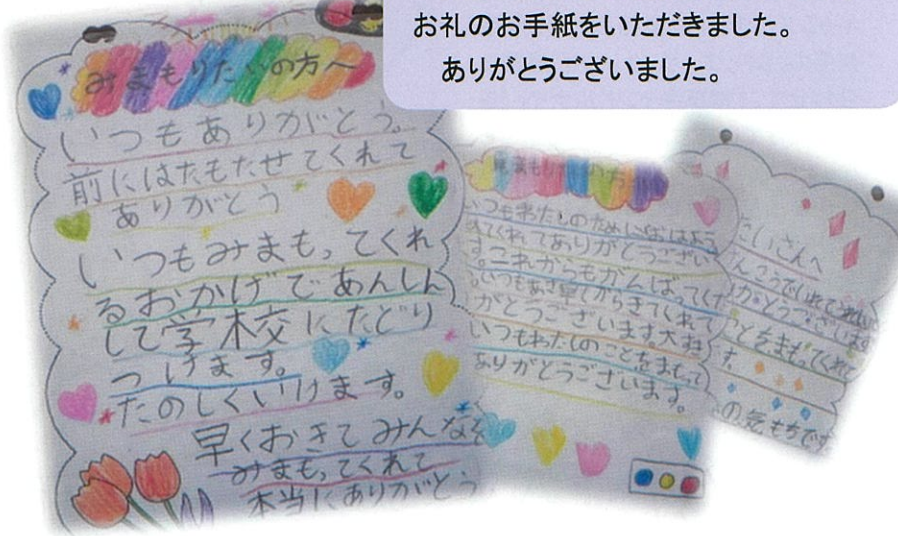 お礼のお手紙をいただきました。
ありがとうございました。
みまもりたいの方へ
いつもありがとう。
前にはたもたせてくれて
ありがとう
いつもみまもってくれ
るおかげであんしん
して学校にたどり
つけます。
たのしくいけます。
早くおきてみんなを
みまもってくれて
本当にありがとう
いつもわたしのためにおはよう
てくれてありがとうござい
す。これからもがんばってくだ
。いつもあさ早くからきてくれて
がとうございます。大
いつもわたしのことをまもって
ありがとうございます。
たいさんへ
とうございます
ことをまもってくれて
す。
の気もちです